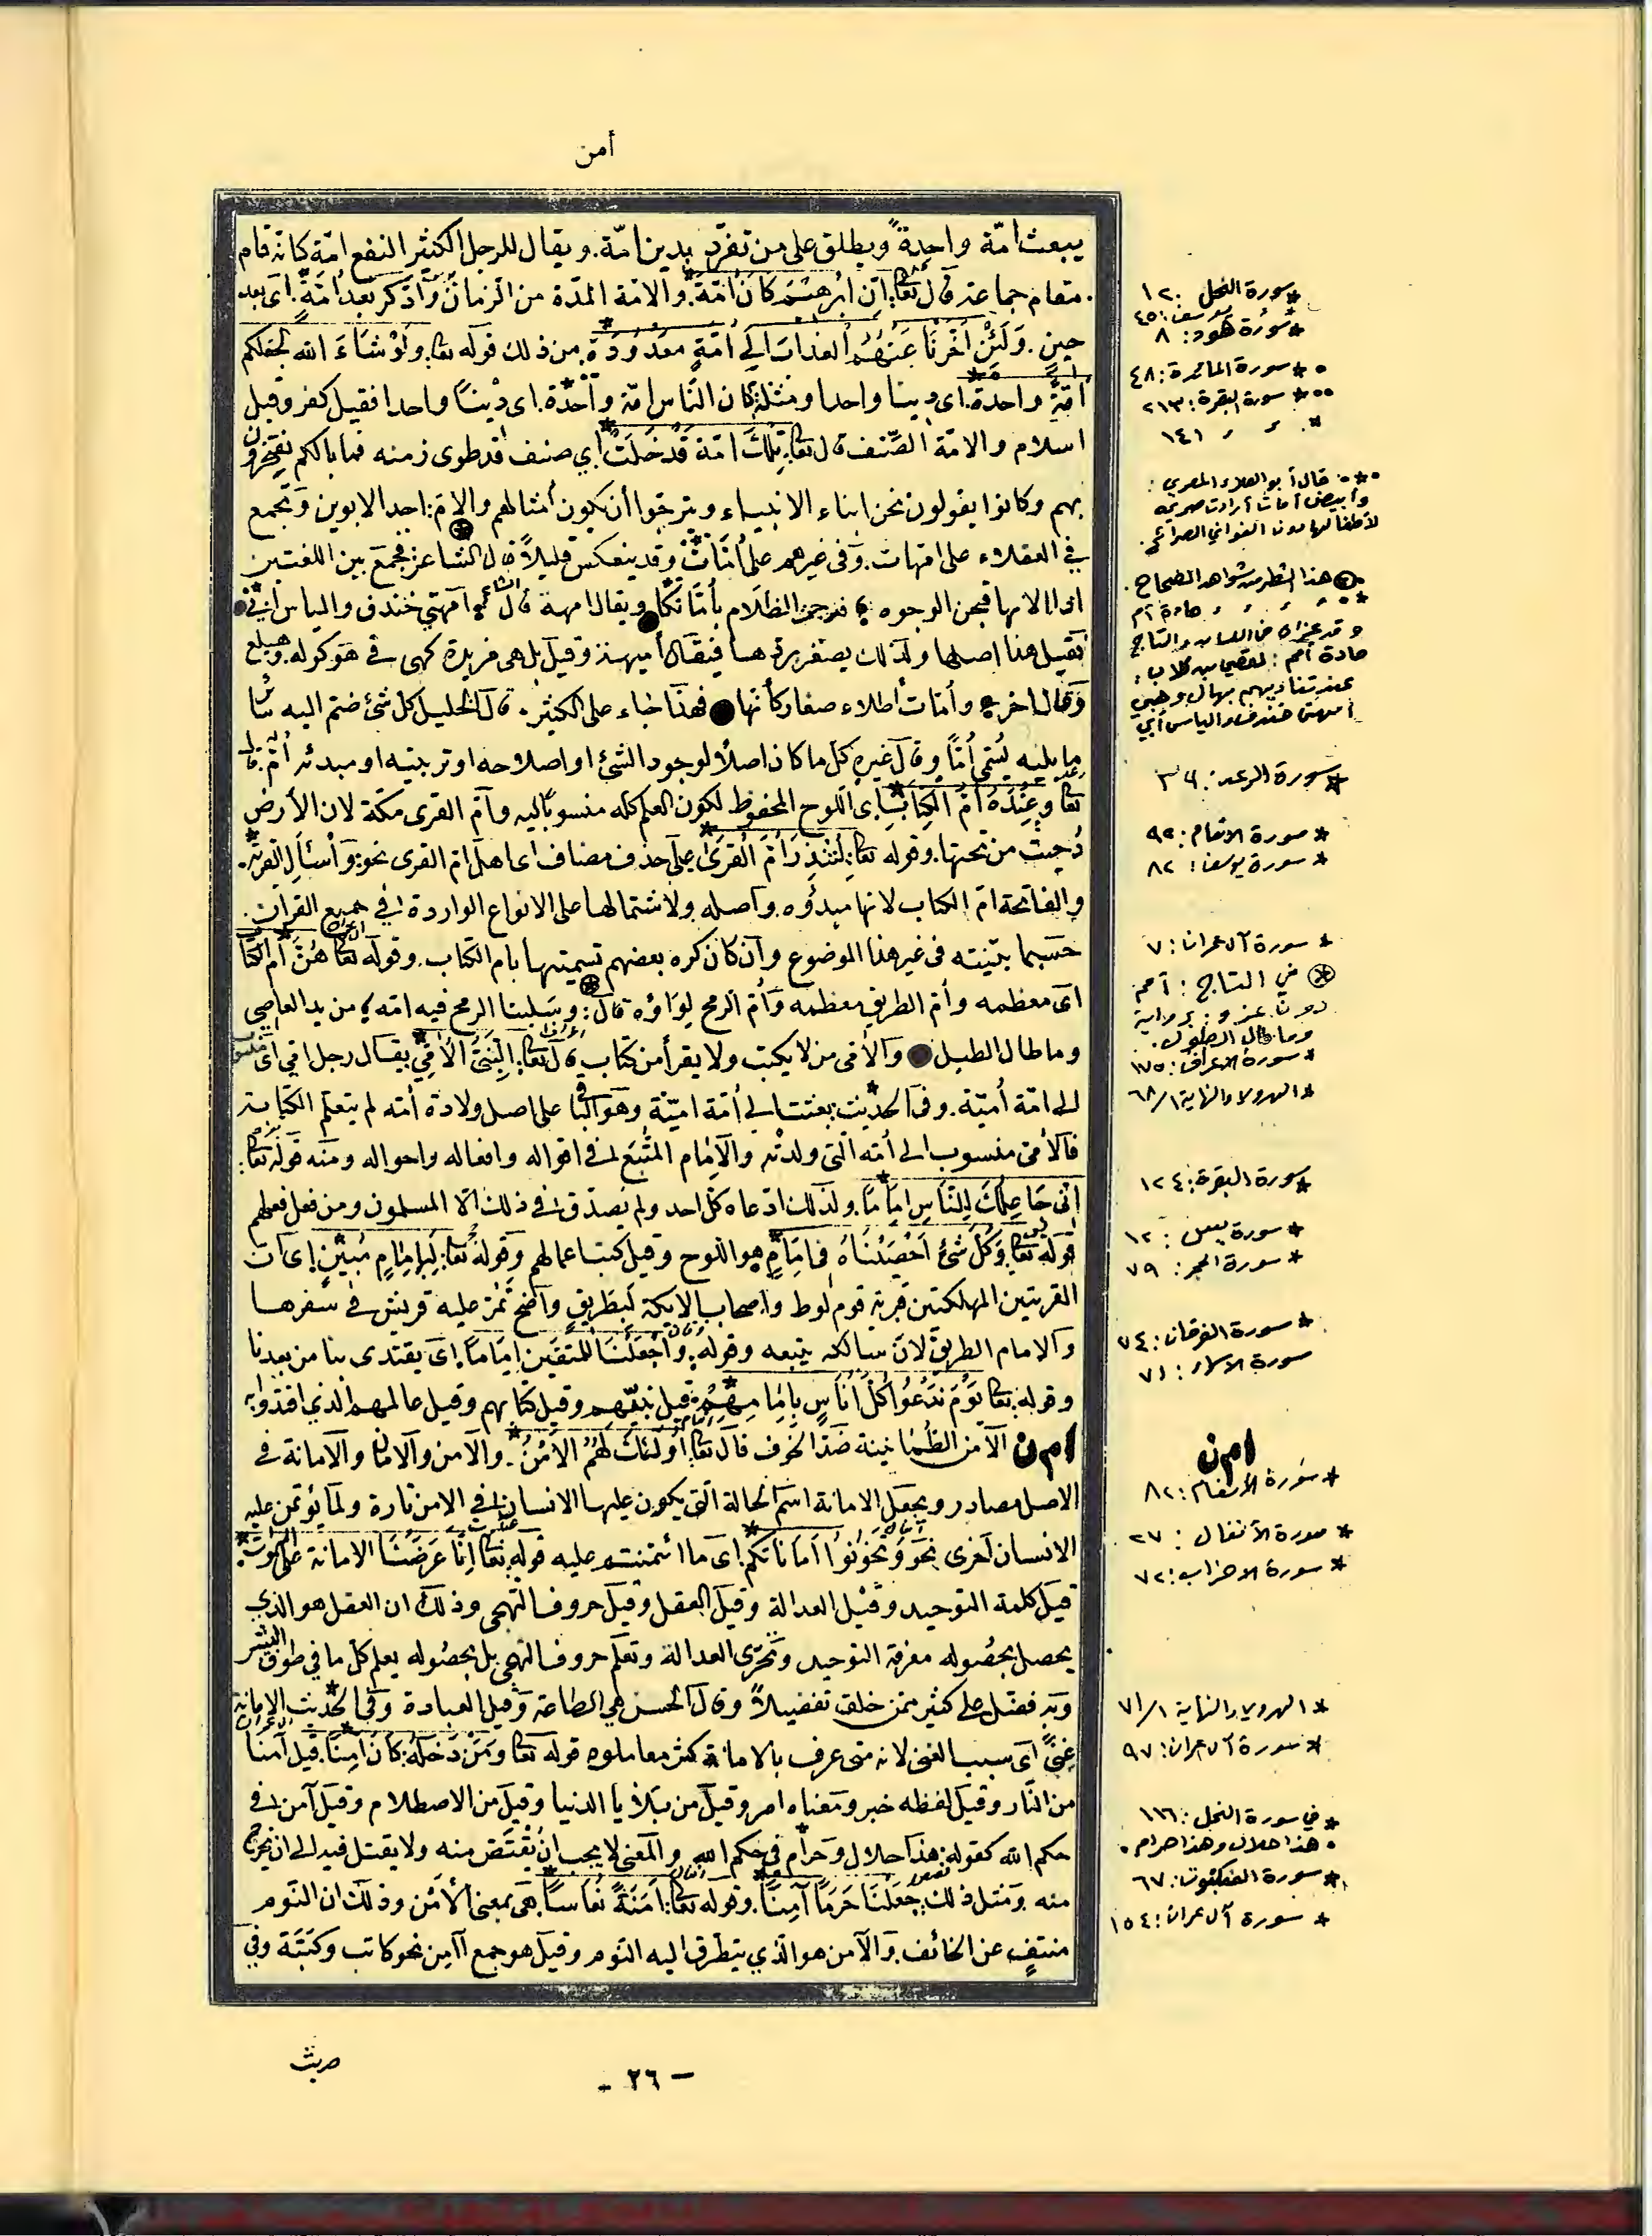 أمن
يبعث امّة واحدةً ويطلق على من تفرّد بدين امّة. ويقال للرجل الكثير النفع امّة كانّه قام
مقام جماعة قال تعا: انّ ابرٰهيمَ كان امّةً. والامّة المدّة من الزمان وَادّكر بعدَ اُمّةٍ. اى بعد
حين. وَلَئِنْ اَخّرنَا عَنْهُمُ العذابَ الى اُمّةٍ معدُودَة. من ذلك قوله تعا. ولوْ شاءَ الله لجعلكم
اُمّةً واحدة. اى دينا واحدا ومثله كان النّاس امّة واحدة. اى دينًا واحدا فقيل كفر وقيل
اسلام والامّة الصّنف قال تعا: تِلكَ امّة قَدْ خَلَتْ أي صنف قد طوى زمنه فما بالكم تفخرون
بهم وكانوا يقولون نحن ابناء الانبياء ويترجّوا أن يكون أمثالهم والامّ: احد الابوين وتجمع
في العقلاء على امّهات. وفى غيرهم على أمّاتٍ وقد ينعكس قليلاً قال الشاعر: فجمع بين اللغتين
اذا الامهات قبحن الوجوه ؛ فرجت الظلام بأُمّاتكا ويقال امهة قال الشاعر ؛ امهتي خندف والياس أبي
فقيل هذا اصلها ولذلك يصغر برد ها فيقال أميهة وقيل بل هى مزيدة كهى فى هو كوله. وهبلع
وقال اخر ؛ وأمّات أطلاء صغار كأنها فهذا جاء على الكثير. قال الخليل كل شئ ضمّ اليه سائر
ما يليه يُسمى اُمًّا وقال غيره كلّ ما كان اصلاً لوجود الشئ او اصلاحه او تربيته او مبدئه اُمّ. قال
تعا وَعِنْدَهُ اُمّ الكِتَابِ اى اللّوح المحفوظ لكون العلم كله منسوبًا اليه وامّ القرى مكّة لان الأرض
دُحيت من تحتها. وقوله تعا: لِتُنذِرَ اُمَّ القُرىٰ على حذف مضاف اى اهل امّ القرى نحو: وَاسْئَلِ القرية.
والفاتحة امّ الكتاب لانها مبدؤه. واصله ولاشتمالها على الانواع الواردة في جميع القرآن.
حسبما بيّنته فى غير هذا الموضوع وان كان كره بعضهم تسميتها بامّ الكتاب. وقوله تعا هُنَّ اُم الكتاب
اى معظمه وأمّ الطريق معظمه وَاُمّ الرمح لِوَاؤه قال: وسلبنا الرمح فيه امّه ؛ من يد العاصي
وما طال الطيل والأمّى من لا يكتب ولا يقرأ من كتاب قال تعا: النّبيّ الاُمّيّ يقال رجل امّي اى منسوب
الى امّة أميّة. وفى الحديث: بعثت الى أمّة اميّة وهو الباقى على اصل ولادة أمّه لم يتعلم الكتابة
فالأمّى منسوب الى أمّه الّتى ولدته والاِمام المتّبَع فى اقواله وافعاله واحواله ومنه قوله تعا:
انّى جَاعِلُكَ لِلنّاسِ اِمَامًا. ولذلك ادّعاه كلّ احد ولم يصدّق فى ذلك الّا المسلمون ومن فعل فعلهم
قوله تعا: وَكُلّ شئٍ اَحْصَيْنَاهُ فى اِمَامٍ هو اللّوح وقيل كتب اعمالهم وقوله تعا: لَبِاِمامٍ مُبينٍ اى ان
القريتين المهلكتين قرية قوم لوط واصحاب الايكة لَبِطريق واضح تمرّ عليه قريش فى سفرها
والامام الطريق لانّ سالكه يتبعه وقوله: وَاجعَلنَا للمتّقينَ اِمَامًا. اى يقتدى بنا من بعدنا
وقوله تعا: يَوْمَ نَدْعُوا كُلَّ اُنَاسٍ بِاِمَامِهِمْ: قيل نبيّهم وقيل كتابهم وقيل عالمهم الذي اقتدوا به
امن الآمن الطمانينة ضدّ الخوف قال تعا: اُولٰئكَ لَهُم الاَمْنُ. والامن والامان والامانة فى
الاصل مصادر ويجعل الامانة اسم الحالة الّتى يكون عليها الانسان في الامن تارة ولما يؤتمن عليه
الانسان أخرى نحو وَتَخُونُوا اَمَانَاتكم اى ما ائتمنتم عليه قوله تعا: اِنّا عَرَضْنَا الامانة على السموات.
قيل كلمة التوحيد وقيل العدالة وقيل العقل وقيل حروف التهجى وذلك ان العقل هو الذي
يحصل بحصُوله معرفة التوحيد وتحرّى العدالة وتعلّم حروف التهجى بل بحصُوله يعلم كلّ ما في طوق البشر
وبه فضّل على كثير ممّن خلق تفضيلاً وقال الحسن هي الطاعة وقيل العبادة وفي الحديث الامانة
غِنًى اى سبب الغنى لانه متى عرف بالامانة كثر معاملوه قوله تعا ومَنْ دَخَلَهُ كَانَ اٰمِنًا. قيل آمنا
من النّار وقيل لفظه خبر ومعناه امر وقيل من بلايا الدنيا وقيل من الاصطلام وقيل آمن فى
حكم الله كقوله: هذا حلال وحرام فى حكم الله. والمعنى لا يجب اَنْ يُقْتَصّ منه ولا يقتل فيه الى ان يخرج
منه ومثل ذلك جَعَلْنَا حَرَمًا آمِنًا. وقوله تعا: اَمَنَةً نُعَاسًا. هى بمعنى الأمْن وذلك ان النّوم
منتفٍ عن الخائف. والآمن هو الّذي يتطرّق اليه النّوم وقيل هو جمع آمن نحو كاتب وكَتَبَة وفي
حديث
- ٢٦ -
* سورة النحل : ١٢٠
يوسف : ٤٥
* سورة هود : ٨
* سورة المائدة : ٤٨
* سورة البقرة : ٢١٣
* ، ، ١٤١
قال أبو العلاء المصري :
وأبيض أمات أرادت صريحه
لأطفالها دون الغواني الصرائح.
هذا الشطر من شواهد الصحاح.
، ، ، مادة أم
وقد عزاه في اللسان والتاج
مادة أمم : لقصي بن كلاب :
عند تناديهم بهال وهبي
أمهتي خندف والياس أبي
* سورة الرعد : ٣٩
* سورة الانعام : ٩٢
* سورة يوسف : ٨٢
* سورة آل عمران : ٧
في التاج : أمم
دون عزو : برواية
وما طال الطول.
* سورة الاعراف : ١٥٧
* الهروي والنهاية ٦٨/١
* سورة البقرة : ١٢٤
* سورة يس : ١٢
* سورة الحجر : ٧٩
* سورة الفرقان : ٧٤
سورة الاسراء : ٧١
امن
* سورة الأنعام : ٨٢
* سورة الأنفال : ٢٧
* سورة الاحزاب : ٧٢
* الهروي والنهاية ٧١/١
* سورة آل عمران : ٩٧
* في سورة النحل : ١١٦
هذا حلال وهذا حرام.
* سورة العنكبوت : ٦٧
* سورة آل عمران : ١٥٤